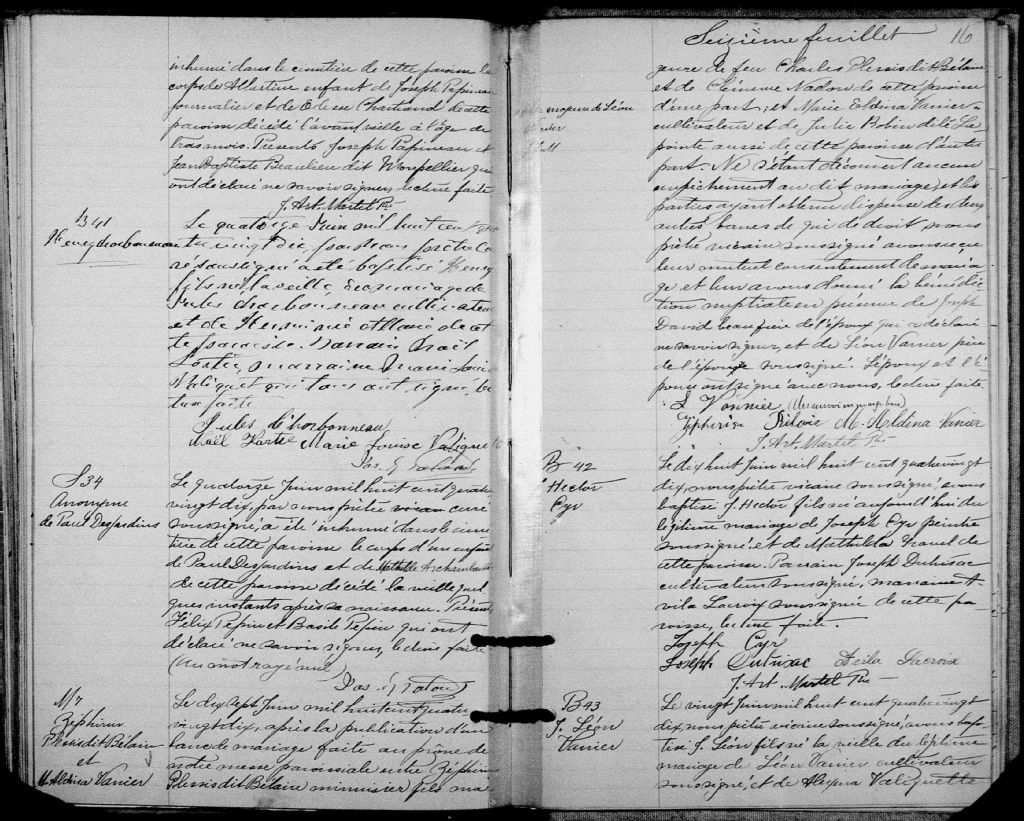 inhumé dans le cimetière de cette paroisse le
corps de Albertine enfant de Joseph Papineau
journalier et de Chartrand de cette
paroisse décédé l'avant veille à l'âge de
trois mois. Présents Joseph Papineau et
Jean Baptiste Beaulieu dit Montpellier qui
ont déclaré ne savoir signer, lecture faite
J. Art. Martel Ptre
B 41
Henry Charbonneau
Le quatorze Juin mil huit cent qua
tre vingt dix, par nous prêtre cu
ré soussigné a été baptisé Henry
fils né la veille, du mariage de
Jules Charbonneau cultivateur
et de Herminie Allaire de cet
te paroisse. Parrain Noël
Lortie, marraine Marie Louise
Valiquet qui tous ont signé lec
ture faite
Jules Charbonneau
Noël Lortie Marie Louise Valiquette
Jas.
S 34
Anonyme
de Paul Desjardins
Le quatorze Juin mil huit cent quatre
vingt dix, par nous prêtre curé
soussigné, a été inhumé dans le cime
tière de cette paroisse le corps d'un enfant
de Paul Desjardins et de Mathilde Archambault
de cette paroisse décédé la veille quel
ques instants après sa naissance. Présents
Félix Pepin et Basile Pepin qui ont
déclaré ne savoir signer, lecture faite
(Un mot rayé nul)
Jas.
M 7
Zéphirin
Plessis dit Bélair
et
M. Aldina Vanier
Le dix sept Juin mil huit cent quatre
vingt dix, après la publication d'un
banc de mariage faite au prône de
notre messe paroissiale entre Zéphirin
Plessis dit Bélair menuisier fils ma
Seizième feuillet 16
jeure de feu Charles Plessis dit Bélair
et de Clémence Nadon de cette paroisse
d'une part; et Marie Eldina Vanier
cultivateur et de Julie Bobin dite La
pointe aussi de cette paroisse d'autre
part. Ne s'étant découvert aucun
empêchement au dit mariage, et les
parties ayant obtenu dispense des deux
autres bancs de qui de droit, nous
prêtre vicaire soussigné avons reçu
leur mutuel consentement de maria
ge et leur avons donné la bénédic
tion nuptiale en présence de Joseph
David beau frère de l'époux qui a déclaré
ne savoir signer, et de Léon Vanier père
de l'épouse soussigné. L'époux et l'é
pouse ont signé avec nous, lecture faite.
mineure de Léon
Vanier
J.A.M
L Vannier
Zepherin Bélair M. Aldina Vanier
J. Art. Martel Ptre
B 42
J Hector
Cyr
Le dix huit Juin mil huit cent quatre vingt
dix, nous prêtre vicaire soussigné, avons
baptisé J. Hector fils né aujourd'hui du
légitime mariage de Joseph Cyr peintre
soussigné et de Mathilda Gravel de
cette paroisse. Parrain Joseph Dubrisac
cultivateur soussigné, marraine A
vila Lacroix soussignée de cette pa
roisse, lecture faite.
Joseph Cyr
Joseph Dubrisac Avila Lacroix
J. Art. Martel Ptre
B 43
J. Léon
Vanier
Le vingt Juin mil huit cent quatre vingt
dix, nous prêtre vicaire soussigné, avons bap
tisé J. Léon fils né la veille du légitime
mariage de Léon Vanier, cultivateur
soussigné, et de Alexina Valiquette